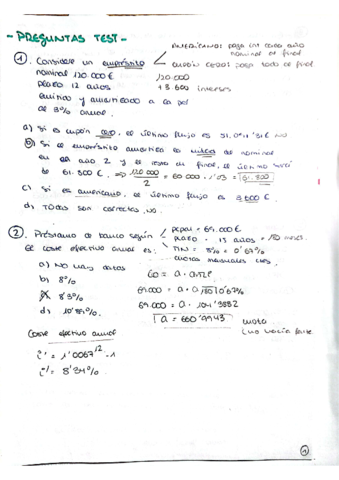 - PREGUNTAS TEST -
AMERICANO: paga int cada año
nominal al final
① Considere un empréstito
CUPÓN CERO: paga todo al final
nominal 120.000€
120.000
plazo 12 años
+ 3.600 intereses
emitido y amortizado a la par
al 3% anual.
a) Si es cupón cero, el último flujo es
NO
b) Si el empréstito amortiza la mitad del nominal
en el año 2 y el resto al final, el último será
de 61.800 €. => 120.000 / 2 = 60.000 · 1'03 = 61.800
c) Si es americano, el último flujo es 3.600 €.
d) Todas son correctas. NO
② Préstamo de banco según
= 69.000€
El coste efectivo anual es:
PLAZO = 15 años = 180 meses
TIN = 8% = 0'67%
cuotas mensuales ctes.
a) No hay datos
b) 8%
c) 8'3%
d)
C0 = a ·
69.000 = a · a 180 0'67%
69.000 = a · 104'9882
a = 660'9943
cuota
(no hacía falta)
Coste efectivo anual
i' = 1'0067^12 - 1
i' = 8'34%
1